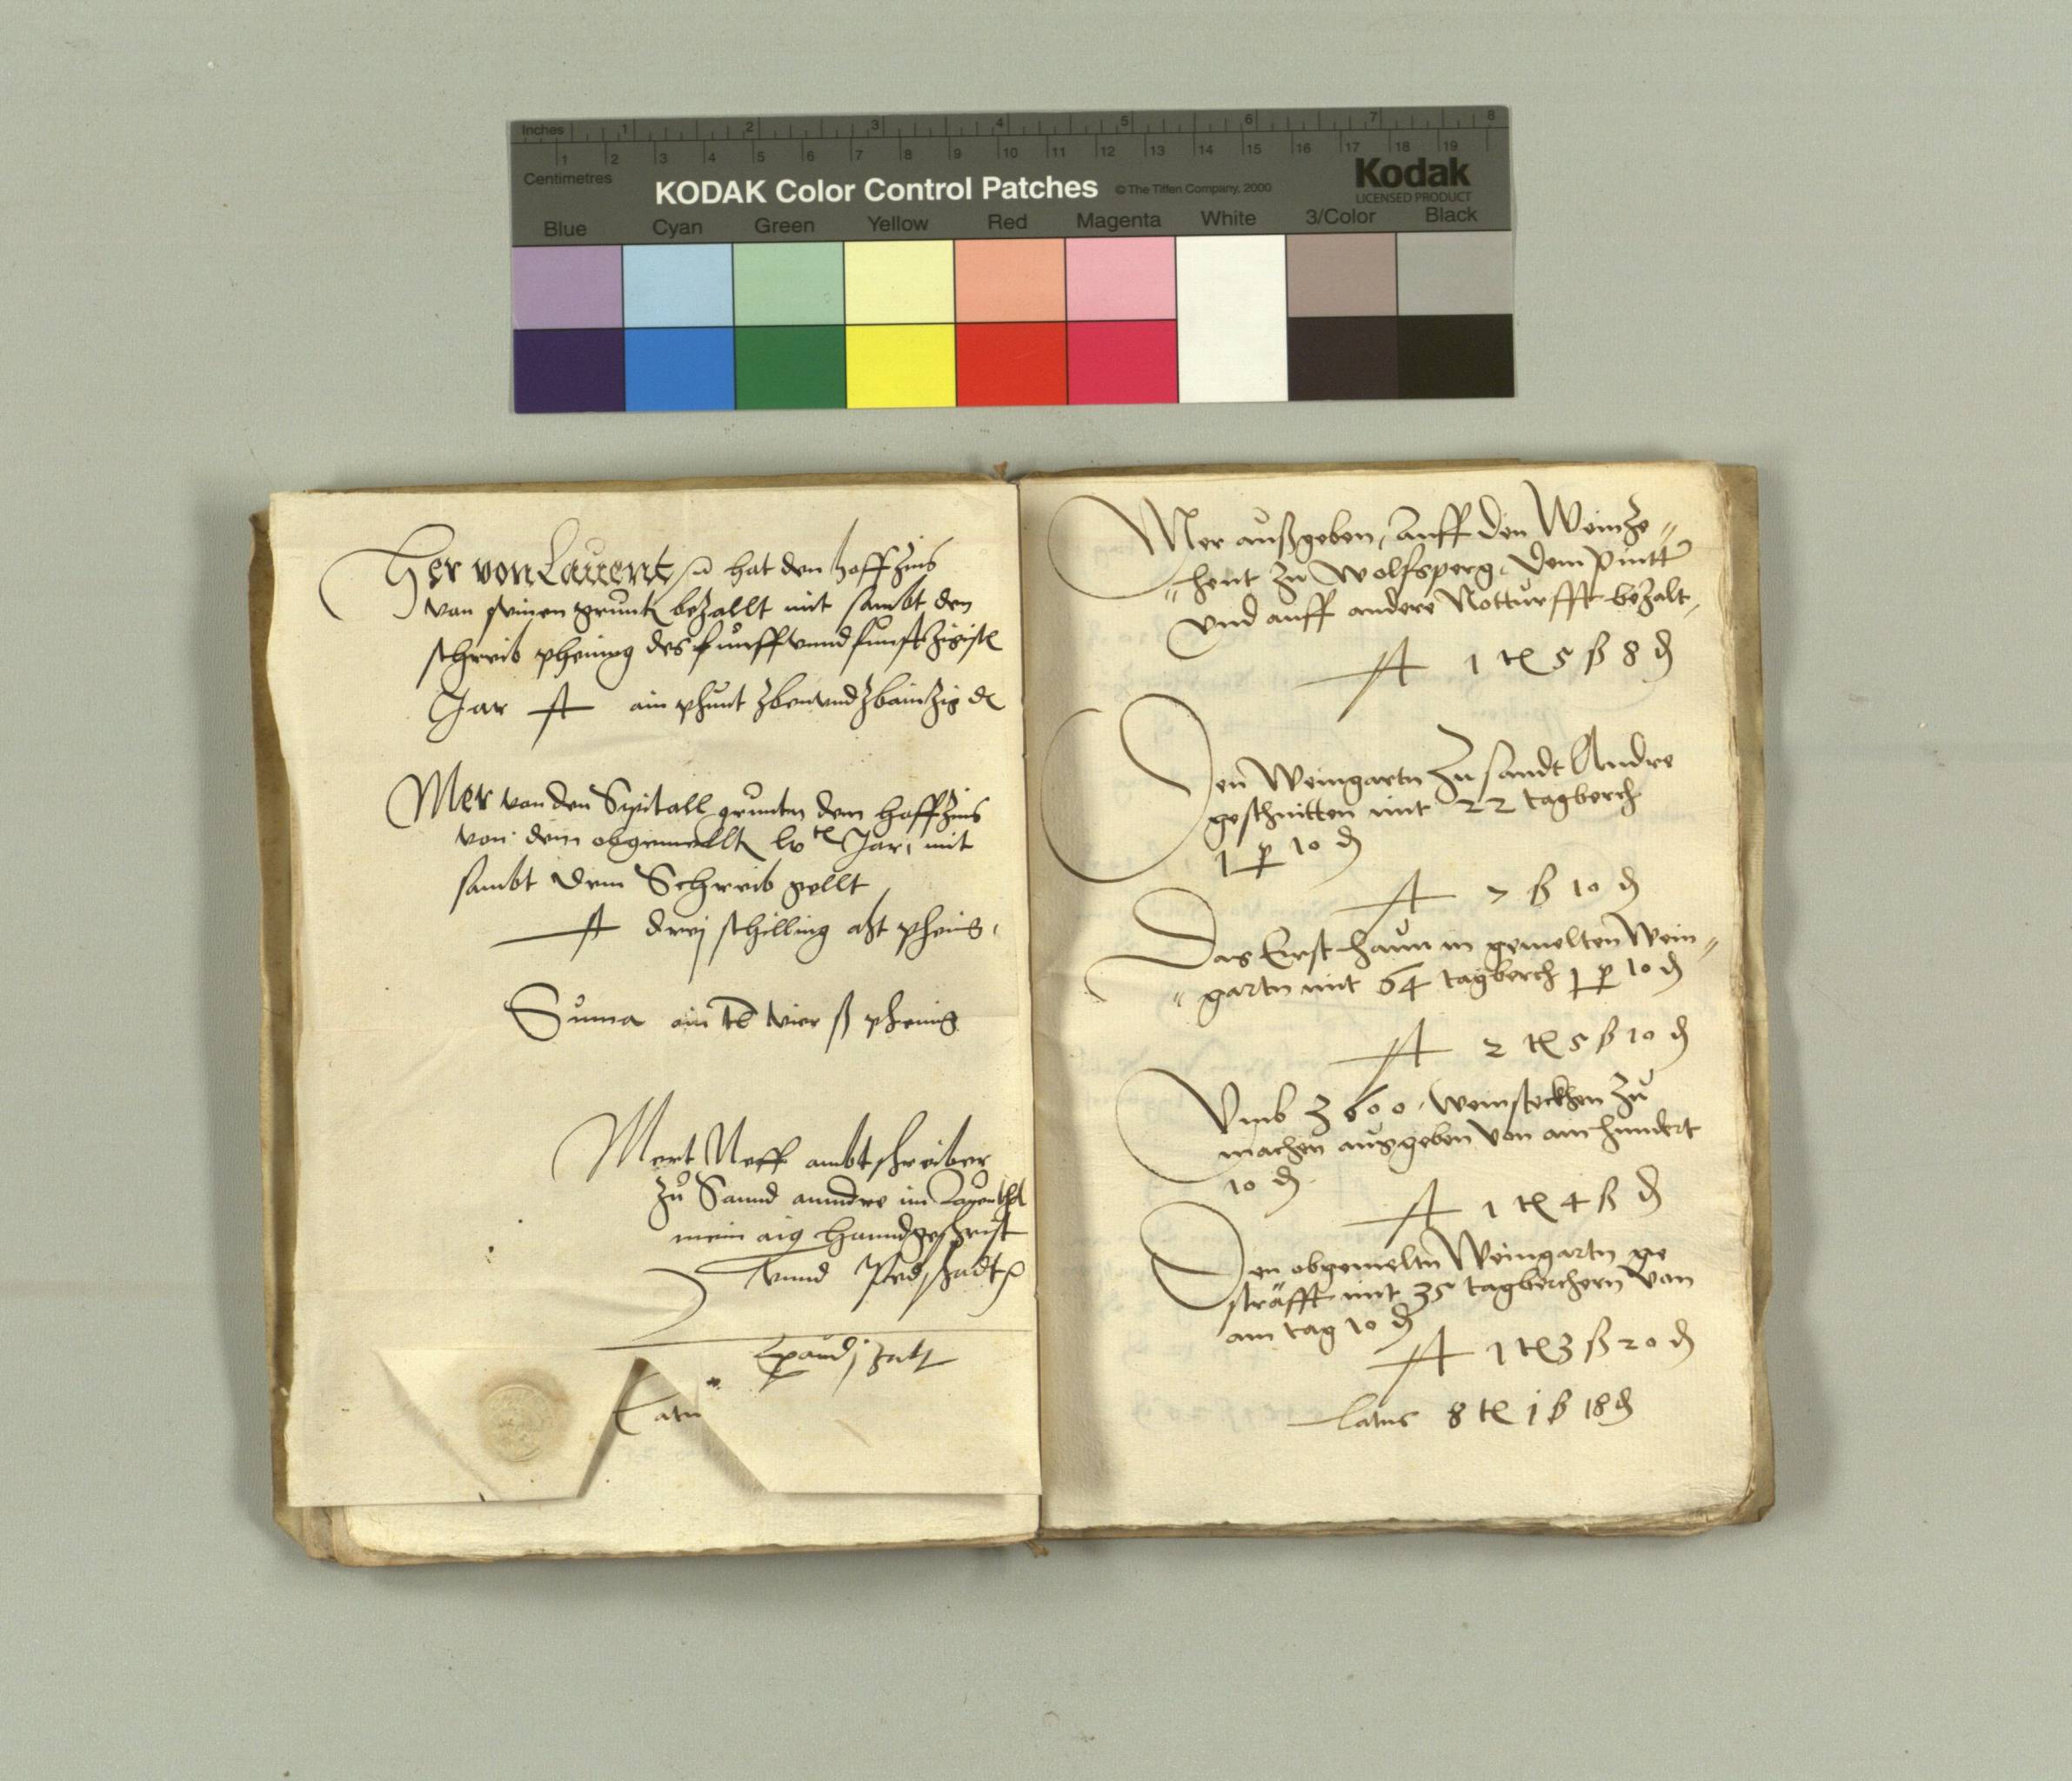 Inches 1 2 3 4 5 6 7 8
1 2 3 4 5 6 7 8 9 10 11 12 13 14 15 16 17 18 19
Centimetres
KODAK Color Control Patches © The Tiffen Company, 2000 Kodak
LICENSED PRODUCT
Blue Cyan Green Yellow Red Magenta White 3/Color Black
Her von Lauent hat den hoff zins
von seinen grunt bezallt mit sambt den
schreib phening des funff unnd funftzigist
Jar ain phunt zbenundzbainzig
Mer von den Spitall gruntn den hoffzins
von dem obgemellt lv Jar, mit
sambt dem Schreib gellt
drej schilling aht phenig,
Suma ain vier ß phenig
Mert Neff ambtschreiber
zu Sannd anndre im Lauenthal
mein aig hanndgeschrift
vnnd Pedschadt
Mer außgeben, auff den Weinze
hent zu Wolfsperg, dem pintt
vnd auff andere Notturfft bezalt,
1 5 ß 8 ₰
Den Weingartn zu sandt Andre
geschnitten mit 22 tagberch
1 p 10 ₰
7 ß 10 ₰
Das Erst haun in gemelten Wein
gartn mit 64 tagberch 1 p 10 ₰
2 5 ß 10 ₰
Vmb 3600, weinsteckhen zu
machen ausgeben von am hundert
10 ₰
1 4 ß ₰
Den obgemeltn Weingartn ge
sträfft mit 35 tagberchern von
am tag 10 ₰
1 3 ß 20 ₰
Latus 8 1 ß 18 ₰